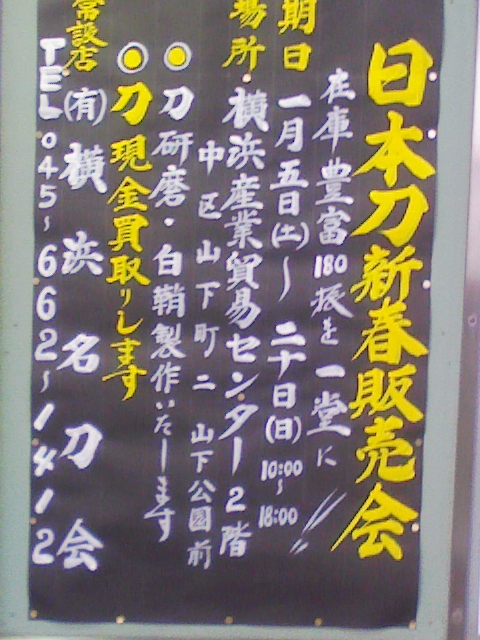 日本刀新春販売会
在庫豊富180振を一堂に
期日
一月五日(土)〜二十日(日)
10:00〜18:00
場所
横浜産業貿易センター2階
中区山下町二 山下公園前
◉刀研磨・白鞘製作いたします
◉刀現金買取りします
常設店
(有)横浜名刀会
TEL045〜662〜1412